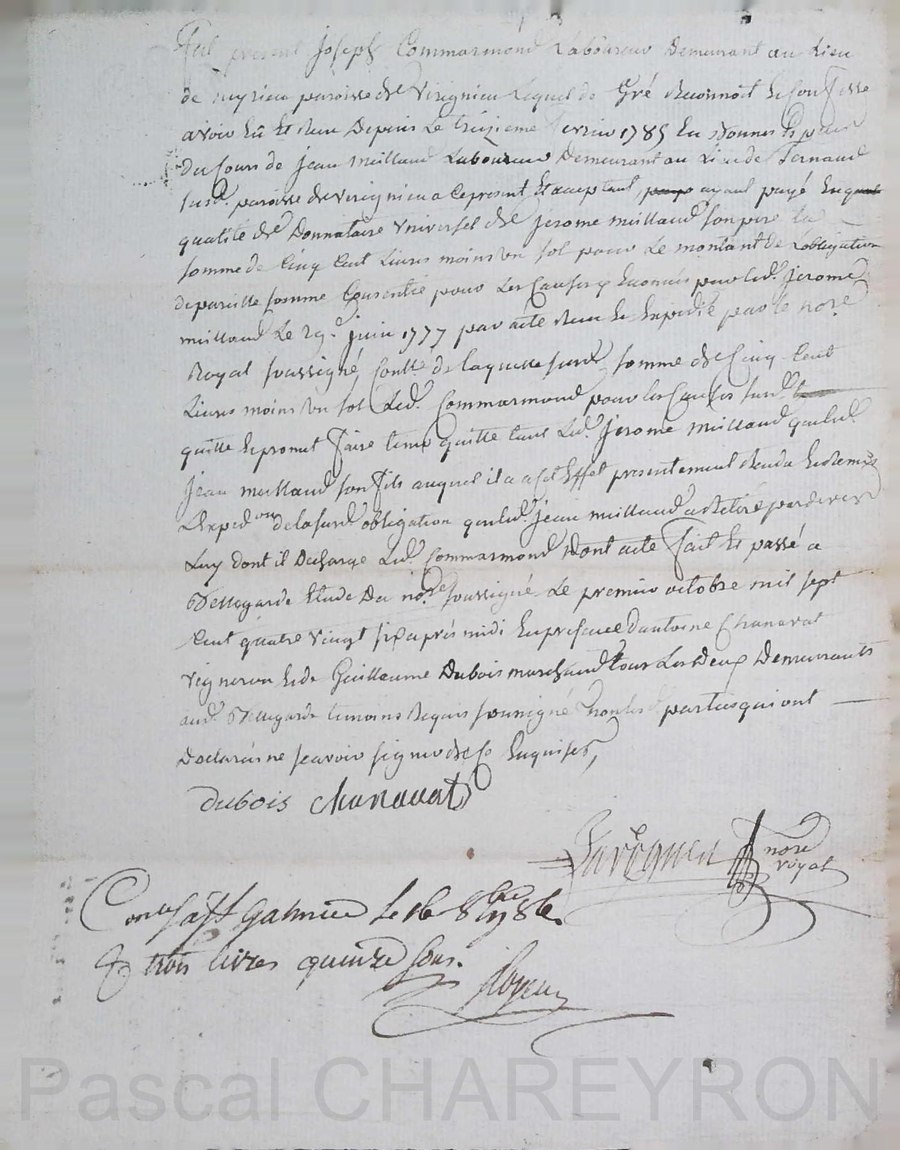 Fut present Joseph Commarmond Laboureur Demeurant au Lieu
de paroisse de Virignieu Lequel de Gré Reconnoit Et Confesse
avoir Eü Et Reçu Depuis Le treizieme fevrier 1785 En
Du Cours de jean meilland Laboureur Demeurant au Lieu de
Susd. paroisse de Virignieu a Ce present Et acceptant, ayant payé En
qualité de Donnataire Vniversel de jerome meilland Son pere La
Somme de Cinq Cent Livres moins Vn Sol pour Le montant de Lobligation
de pareille Somme Consentie pour Les Causes y Enoncés par Led. jerome
meilland Le 29e. juin 1777 par acte Reçu Et Expedié par le nore
Royal Soussigné, De laquelle Susd. Somme de Cinq Cent
Livres moins Vn Sol Led. Commarmond pour les Causes Susd.
quitte Et promet faire tenir quitte tant Led. jerome meilland que Led.
jean meilland Son fils auquel il a a Cet Effet presentement Rendu Et Remis
LExpedon de la Susd. obligation que Led. jean meilland a Retiré par devers
Luy dont il Decharge Led. Commarmond Dont acte fait Et passé a
Bellegarde Etude Du nore. Soussigné Le premier octobre mil Sept
Cent quatre Vingt Six après midi En presence Dantoine Chanavat
Vigneron Et de Guillaume Dubois marchand tous Les Deux Demeurants
aud. Bellegarde temoins Requis Soussigné Non Les parties qui ont
Declaré ne Scavoir Signer de Ce Enquises,
dubois chanavat
nore
royal
Conlé à St Galmier Le 16 8bre 1786.
trois livres quinze Sous.
Pascal CHAREYRON